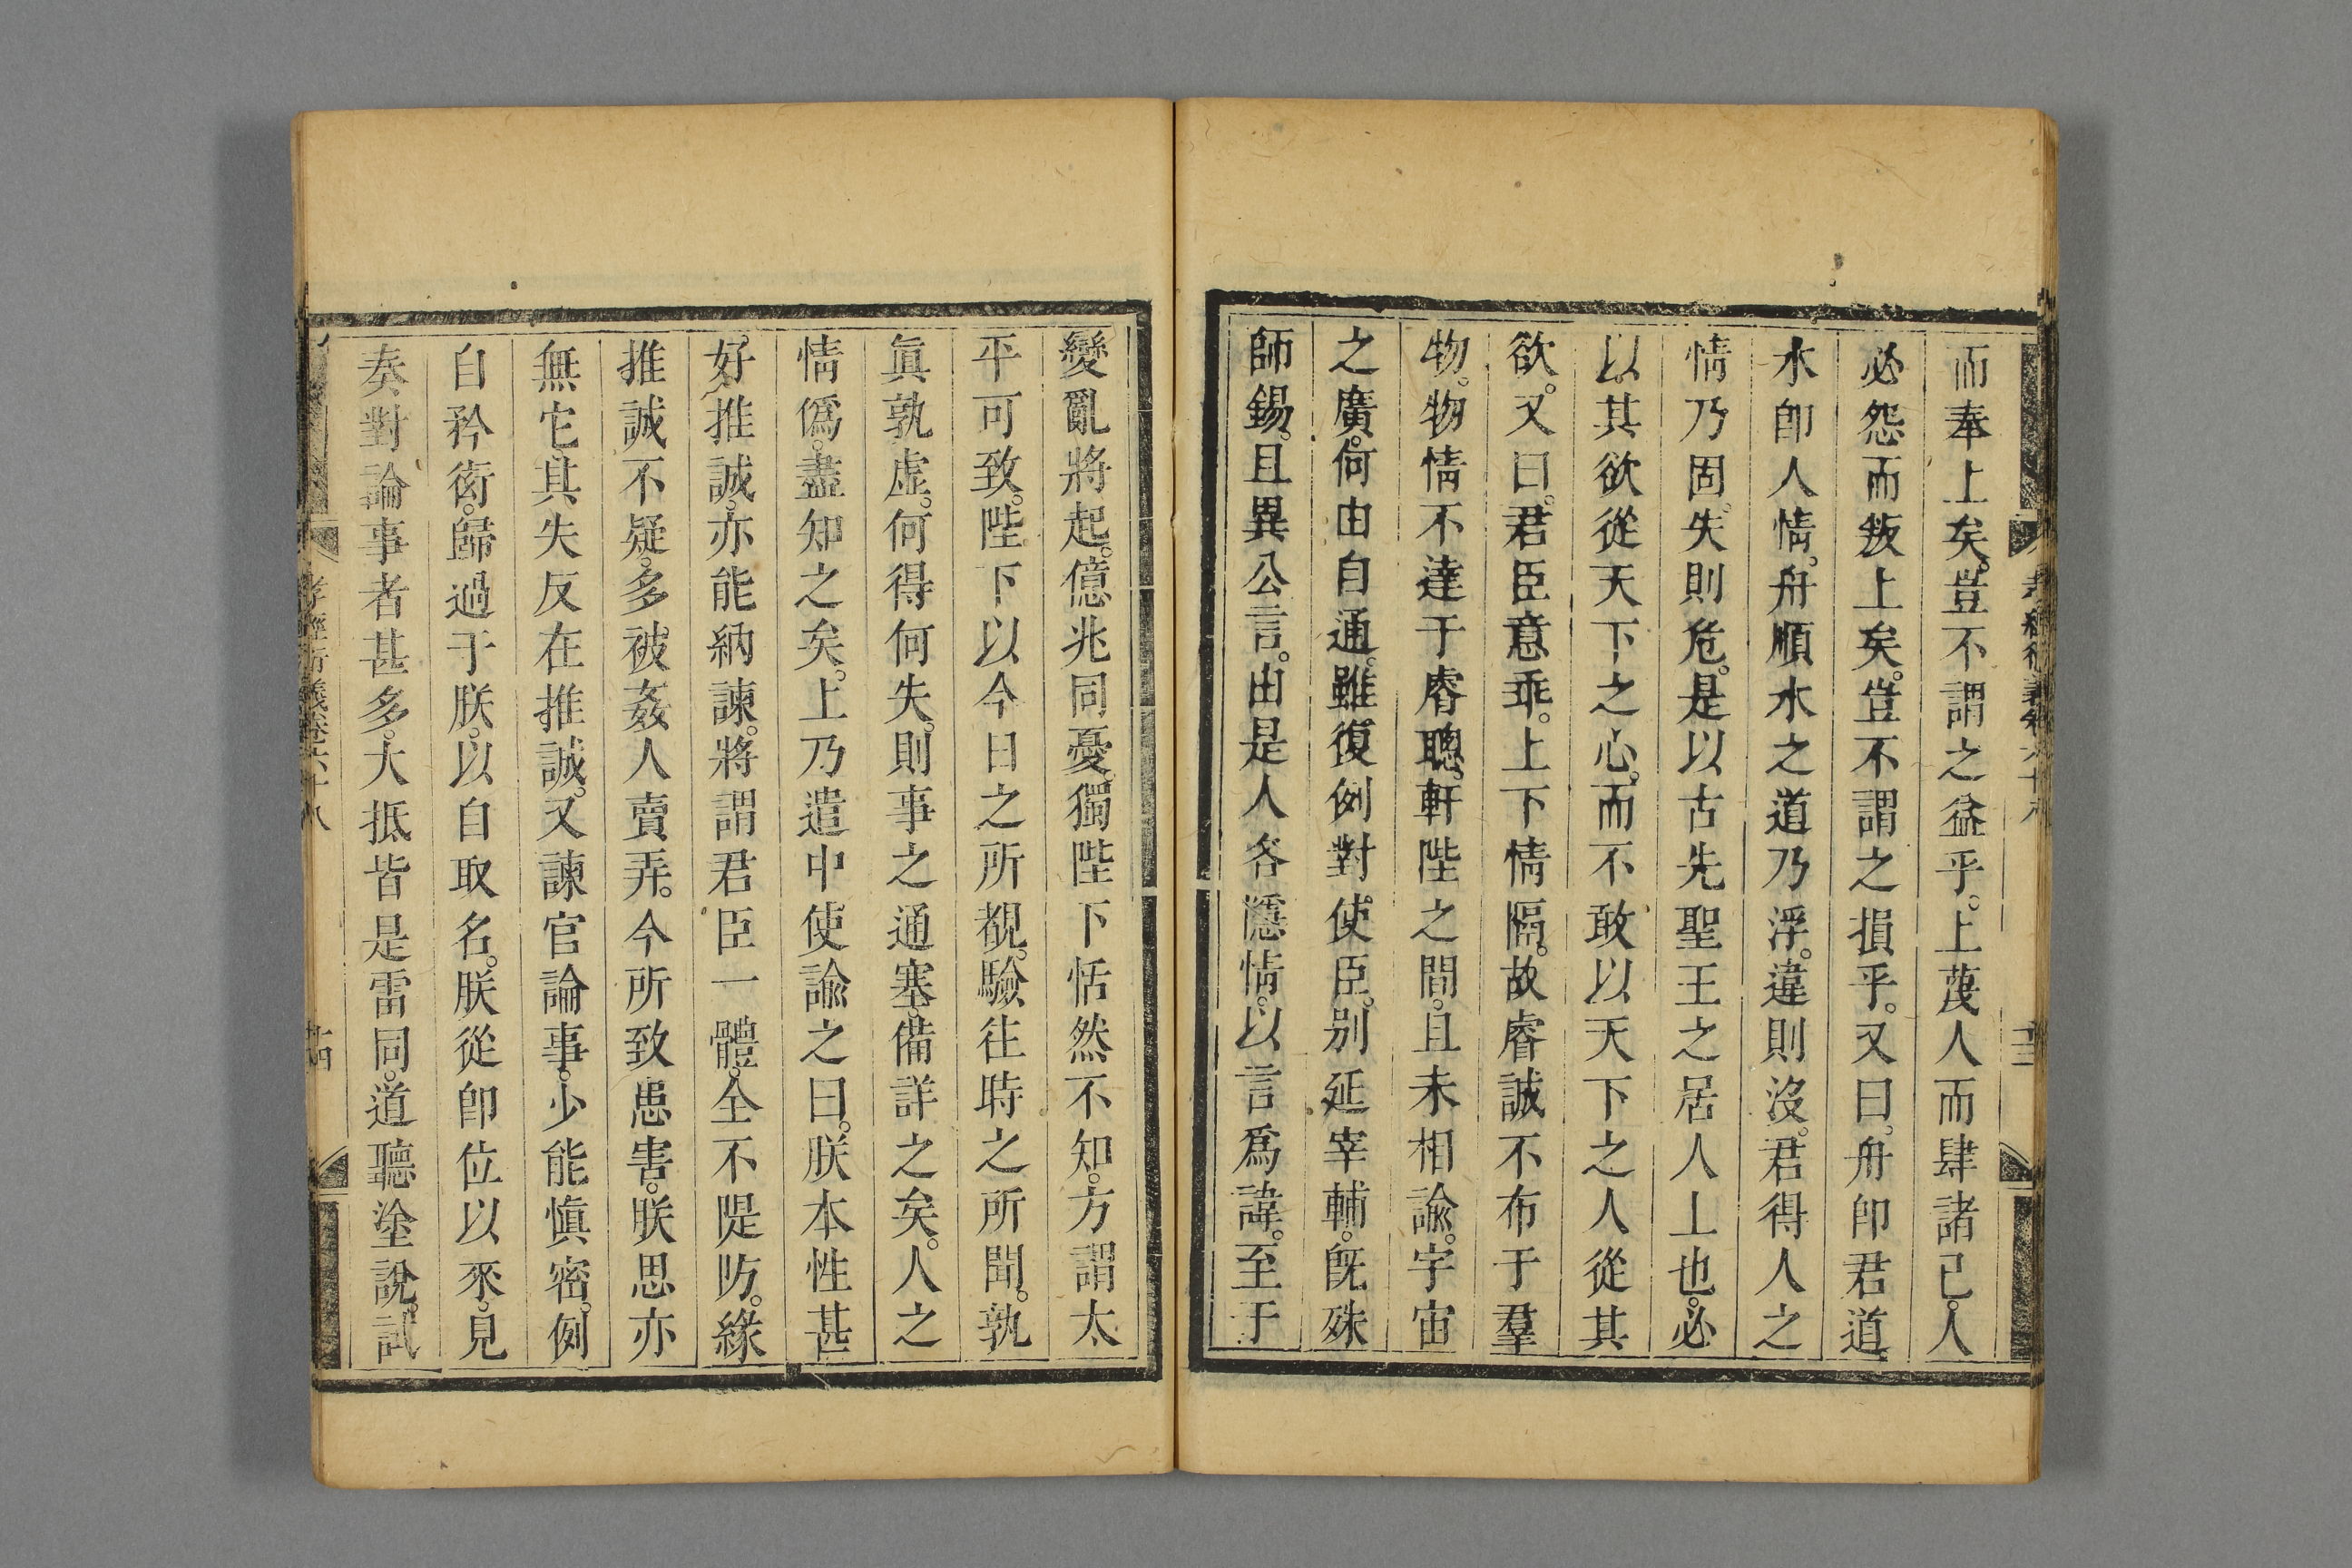 而奉上矣。豈不謂之益乎。上蔑人而肆諸己。人
必怨而叛上矣。豈不謂之損乎。又曰。舟卽君道。
水卽人情。舟順水之道乃浮。違則沒。君得人之
情乃固。失則危。是以古先聖王之居人上也。必
以其欲從天下之心。而不敢以天下之人從其
欲。又曰。君臣意乖。上下情隔。故睿誠不布于羣
物。物情不達于睿聰。軒陛之間。且未相諭。宇宙
之廣。何由自通。雖復例對使臣。別延宰輔。旣殊
師錫。且異公言。由是人各隱情。以言爲諱。至于
變亂將起。億兆同憂。獨陛下恬然不知。方謂太
平可致。陛下以今日之所覩。驗往時之所聞。孰
眞孰虛。何得何失。則事之通塞。備詳之矣。人之
情僞。盡知之矣。上乃遣中使諭之曰。朕本性甚
好推誠。亦能納諫。將謂君臣一體。全不隄防。緣
推誠不疑。多被姦人賣弄。今所致患害。朕思亦
無它。其失反在推誠。又諫官論事。少能愼密。例
自矜衒。歸過于朕。以自取名。朕從卽位以來。見
奏對論事者甚多。大抵皆是雷同。道聽塗說。試
孝經衍義卷六十八
廿四